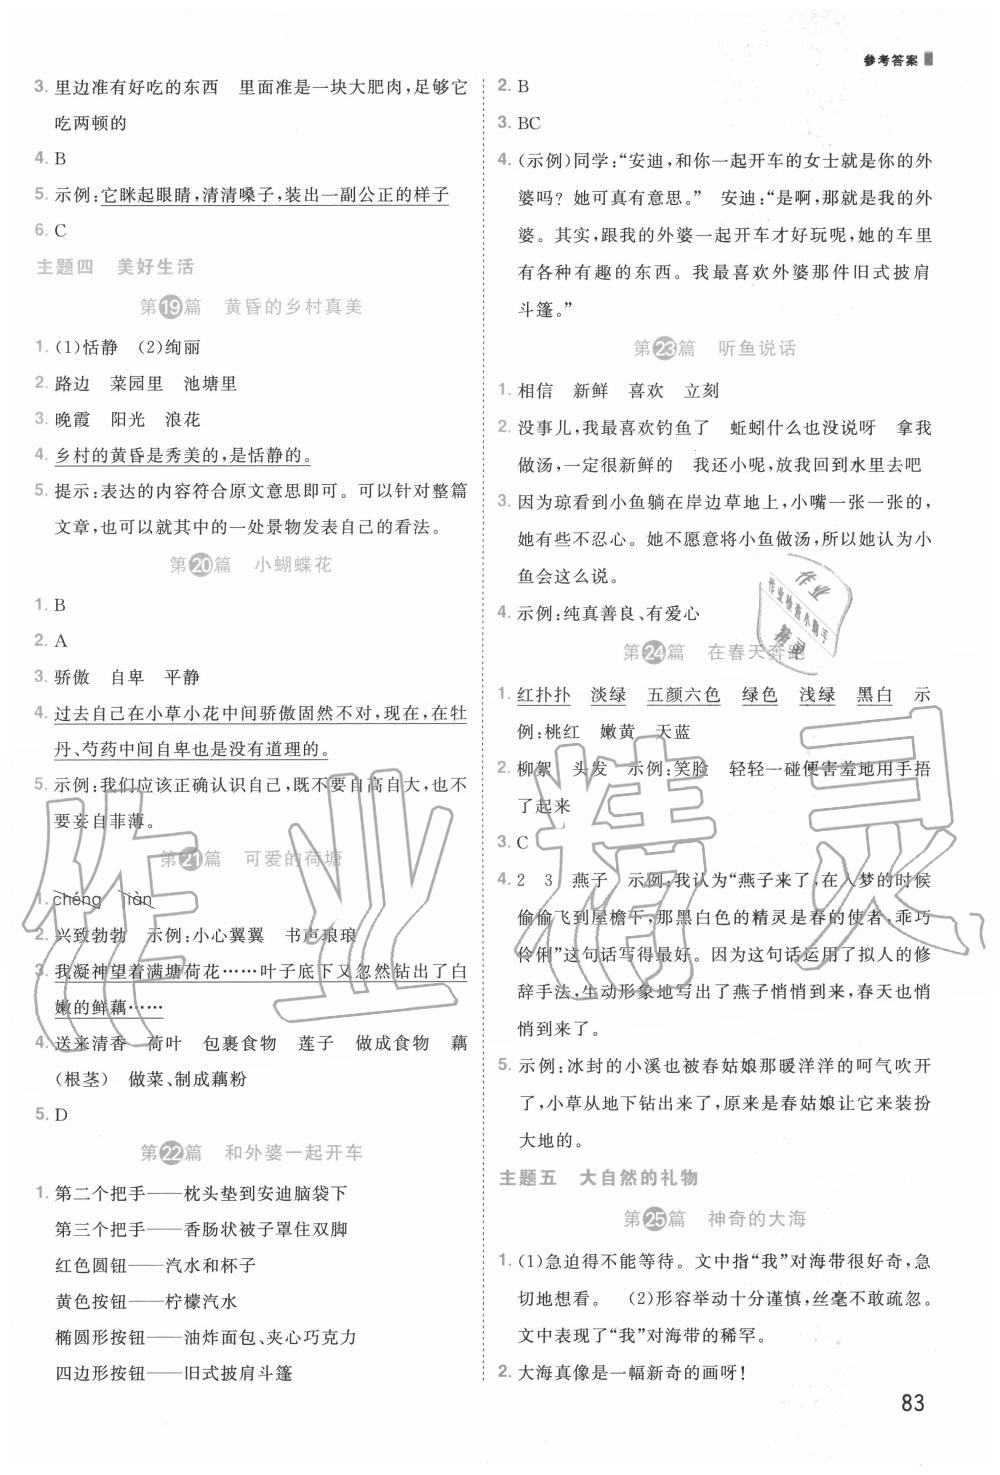 参考答案
3. 里边准有好吃的东西　里面准是一块大肥肉,足够它
吃两顿的
4. B
5. 示例:它眯起眼睛,清清嗓子,装出一副公正的样子
6. C
主题四　美好生活
第19篇　黄昏的乡村真美
1. (1)恬静　(2)绚丽
2. 路边　菜园里　池塘里
3. 晚霞　阳光　浪花
4. 乡村的黄昏是秀美的,是恬静的。
5. 提示:表达的内容符合原文意思即可。可以针对整篇
文章,也可以就其中的一处景物发表自己的看法。
第20篇　小蝴蝶花
1. B
2. A
3. 骄傲　自卑　平静
4. 过去自己在小草小花中间骄傲固然不对,现在,在牡
丹、芍药中间自卑也是没有道理的。
5. 示例:我们应该正确认识自己,既不要自高自大,也不
要妄自菲薄。
第21篇　可爱的荷塘
1. chéng　jiàn
2. 兴致勃勃　示例:小心翼翼　书声琅琅
3. 我凝神望着满塘荷花……叶子底下又忽然钻出了白
嫩的鲜藕……
4. 送来清香　荷叶　包裹食物　莲子　做成食物　藕
(根茎)　做菜、制成藕粉
5. D
第22篇　和外婆一起开车
1. 第二个把手——枕头垫到安迪脑袋下
第三个把手——香肠状被子罩住双脚
红色圆钮——汽水和杯子
黄色按钮——柠檬汽水
椭圆形按钮——油炸面包、夹心巧克力
四边形按钮——旧式披肩斗篷
2. B
3. BC
4. (示例)同学:“安迪,和你一起开车的女士就是你的外
婆吗? 她可真有意思。”　安迪:“是的啊,她就是我的外
婆。其实,跟我的外婆一起开车才好玩呢,她的车里
有各种有趣的东西。我最喜欢外婆那件旧式披肩
斗篷。”
第23篇　听鱼说话
1. 相信　新鲜　喜欢　立刻
2. 没事儿,我最喜欢钓鱼了　蚯蚓什么也没说呀　拿我
做汤,一定很新鲜的　我还小呢,放我回到水里去吧
3. 因为琼看到小鱼躺在岸边草地上,小嘴一张一张的,
她有些不忍心。她不愿意将小鱼做汤,所以她认为小
鱼会这么说。
4. 示例:纯真善良、有爱心
第24篇　在春天奔跑
1. 红扑扑　淡绿　五颜六色　绿色　浅绿　黑白　示
例:桃红　嫩黄　天蓝
2. 柳絮　头发　示例:笑脸　轻轻一碰便害羞地用手捂
了起来
3. C
4. 2　3　燕子　示例:我认为“燕子来了,在入梦的时候
偷偷飞到屋檐下,那黑白色的精灵是春的使者,乖巧
伶俐”这句话写得最好。因为这句话运用了拟人的修
辞手法,生动形象地写出了燕子悄悄到来,春天也悄
悄到来了。
5. 示例:冰封的小溪也被春姑娘那暖洋洋的呵气吹开
了,小草从地下钻出来了,原来是春姑娘让它来装扮
大地的。
主题五　大自然的礼物
第25篇　神奇的大海
1. (1)急迫得不能等待。文中指“我”对海带很好奇,急
切地想看。　(2)形容举动十分谨慎,丝毫不敢疏忽。
文中表现了“我”对海带的稀罕。
2. 大海真像是一幅新奇的画呀!
83
作业
作业检查小助手
精灵
作业精灵